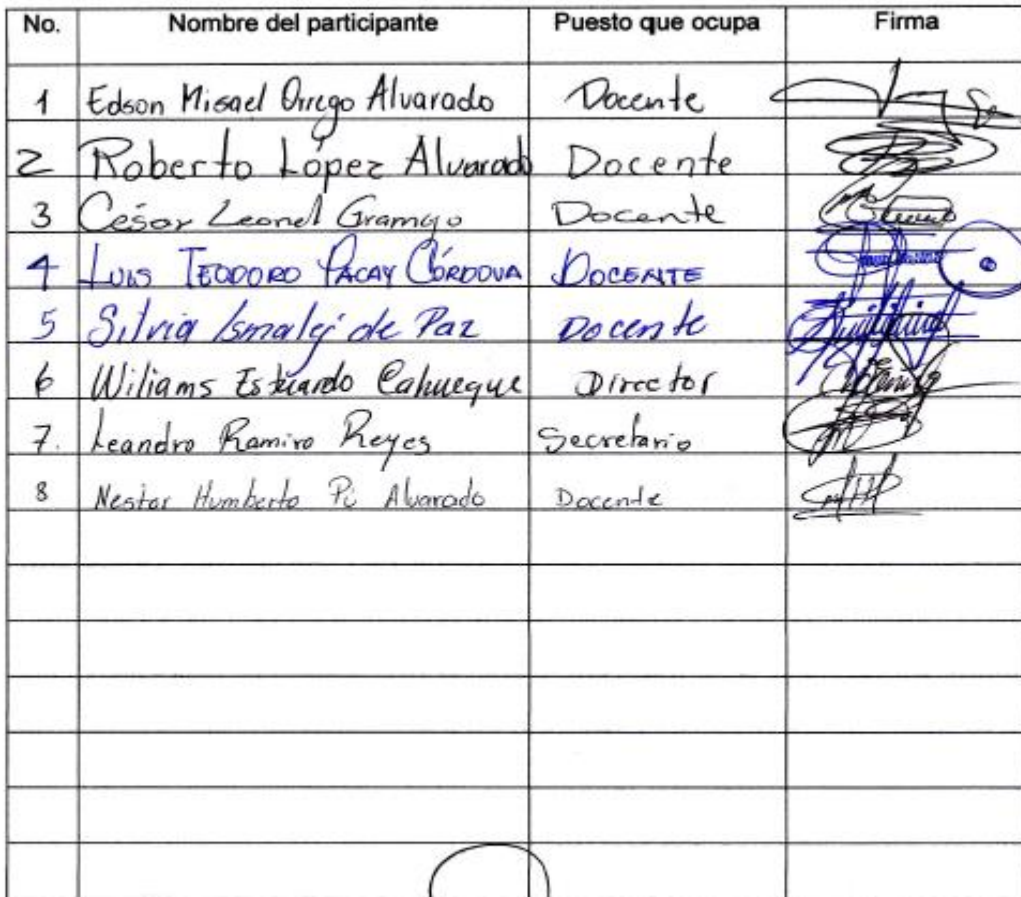 No. Nombre del participante Puesto que ocupa Firma
1 Edson Misael Orrego Alvarado Docente
2 Roberto López Alvarado Docente
3 César Leonel Gramajo Docente
4 LUIS TEODORO PACAY CÓRDOVA DOCENTE
5 Silvia Ismalej de Paz Docente
6 Wiliams Estuardo Cahueque Director
7. Leandro Ramiro Reyes Secretario
8 Nestor Humberto Pú Alvarado Docente